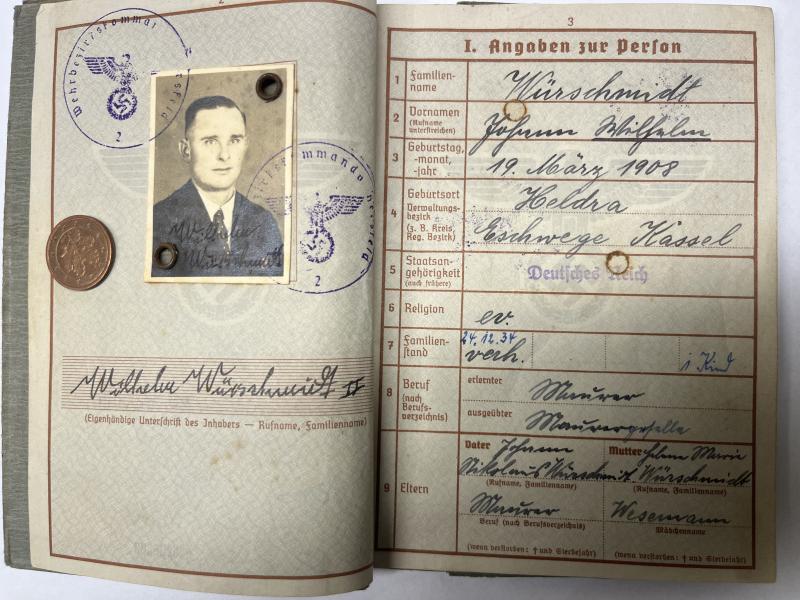 2
Wehrbezirkskommando
2
2
Wilhelm
Würschmidt
Wilhelm Würschmidt II
(Eigenhändige Unterschrift des Inhabers — Rufname, Familienname)
3
I. Angaben zur Person
1 Familien-
name
Würschmidt
2 Vornamen
(Rufname
unterstreichen)
Johann Wilhelm
3 Geburtstag,
-monat,
-jahr
19. März 1908
4 Geburtsort
Verwaltungs-
bezirk
(z. B. Kreis,
Reg. Bezirk)
Heldra
Eschwege Kassel
5 Staatsan-
gehörigkeit
(auch frühere)
Deutsches Reich
6 Religion
ev.
7 Familien-
stand
24.12.34
verh.
1 Kind
8 Beruf
(nach
Berufs-
verzeichnis)
erlernter
Maurer
ausgeübter
Maurergeselle
9 Eltern
Vater Johann
Nikolaus Würschmidt
(Rufname, Familienname)
Maurer
Beruf (nach Berufsverzeichnis)
(wenn verstorben: † und Sterbejahr)
Mutter Helene Marie
Würschmidt
(Rufname, Familienname)
Wesemann
Mädchenname
(wenn verstorben: † und Sterbejahr)